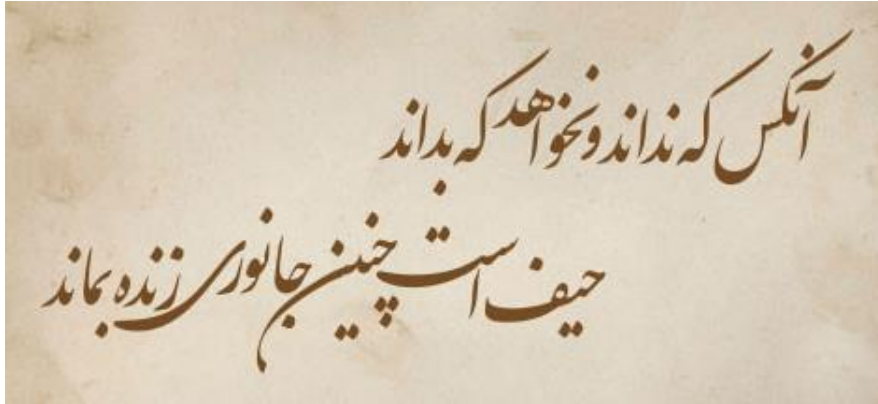 آنکس که نداند و نخواهد که بداند
حیف است چنین جانوری زنده بماند